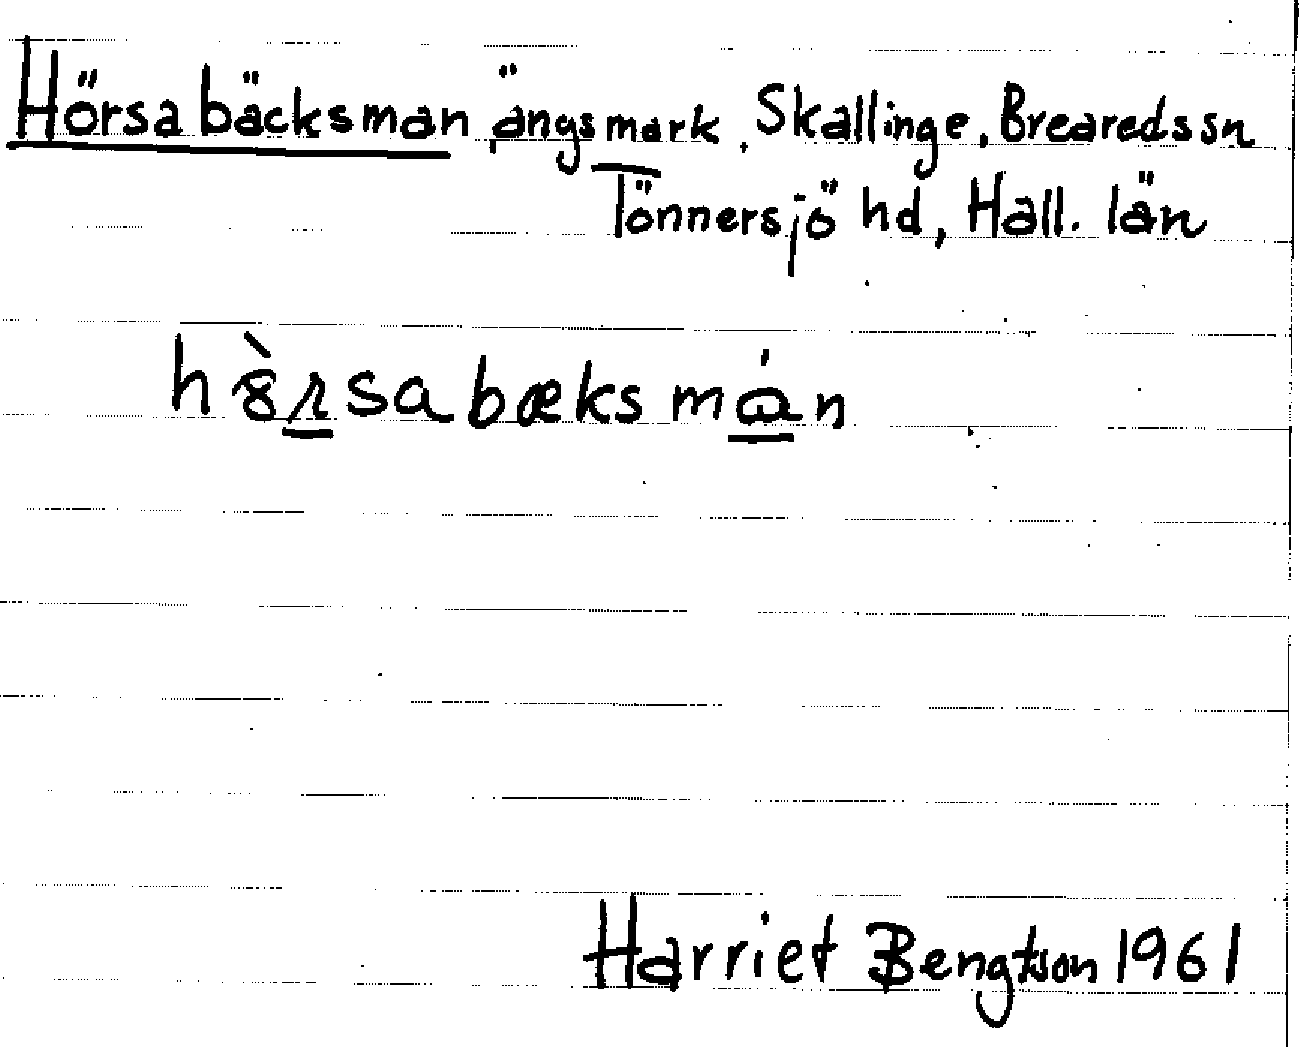 Hörsabäcksman, ängsmark, Skällinge, Breareds sn
Tönnersjö hd, Hall. län
hȣ̀rsabæksmán
Harriet Bengtson 1961